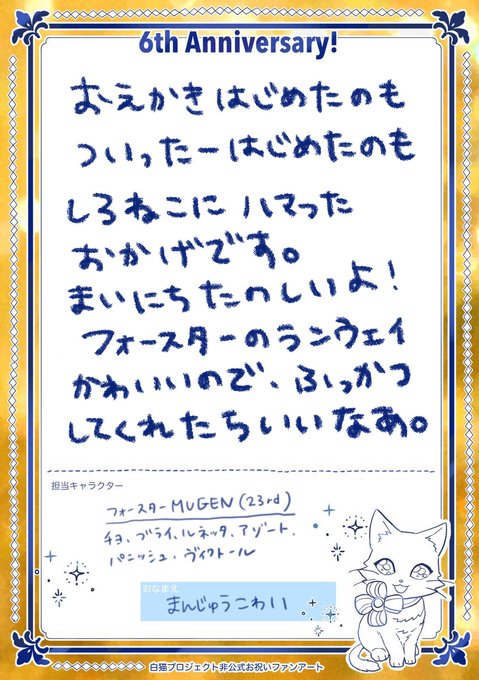 6th Anniversary!
おえかきはじめたのも
ついったーはじめたのも
しろねこに ハマった
おかげです。
まいにちたのしいよ!
フォースターのランウェイ
かわいいので、ふっかつ
してくれたらいいなあ。
担当キャラクター
フォースターMUGEN(23rd)
チヨ、ブライ、ルネッタ、アゾート、
パニッシュ、ヴィクトール
おなまえ
まんじゅうこわい
白猫プロジェクト非公式お祝いファンアート